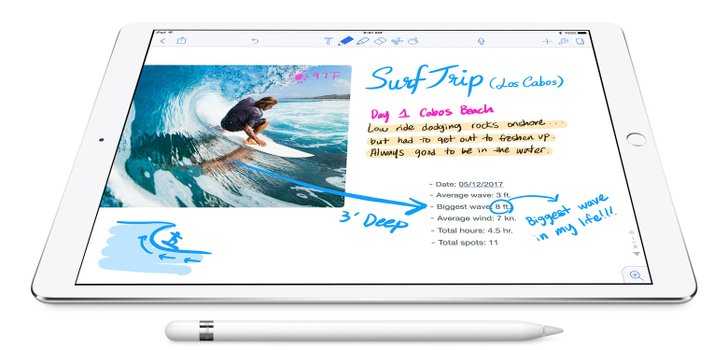 9:41 AM
100%
97F
Surf Trip (Los Cabos)
Day 1 Cabos Beach
Low ride dodging rocks onshore...
but had to get out to freshen up.
Always good to be in the water.
- Date: 05/12/2017
- Average wave: 3 ft.
- Biggest wave: 8 ft.
- Average wind: 7 kn.
- Total hours: 4.5 hr.
- Total spots: 11
3' Deep
Biggest wave
in my life!!!